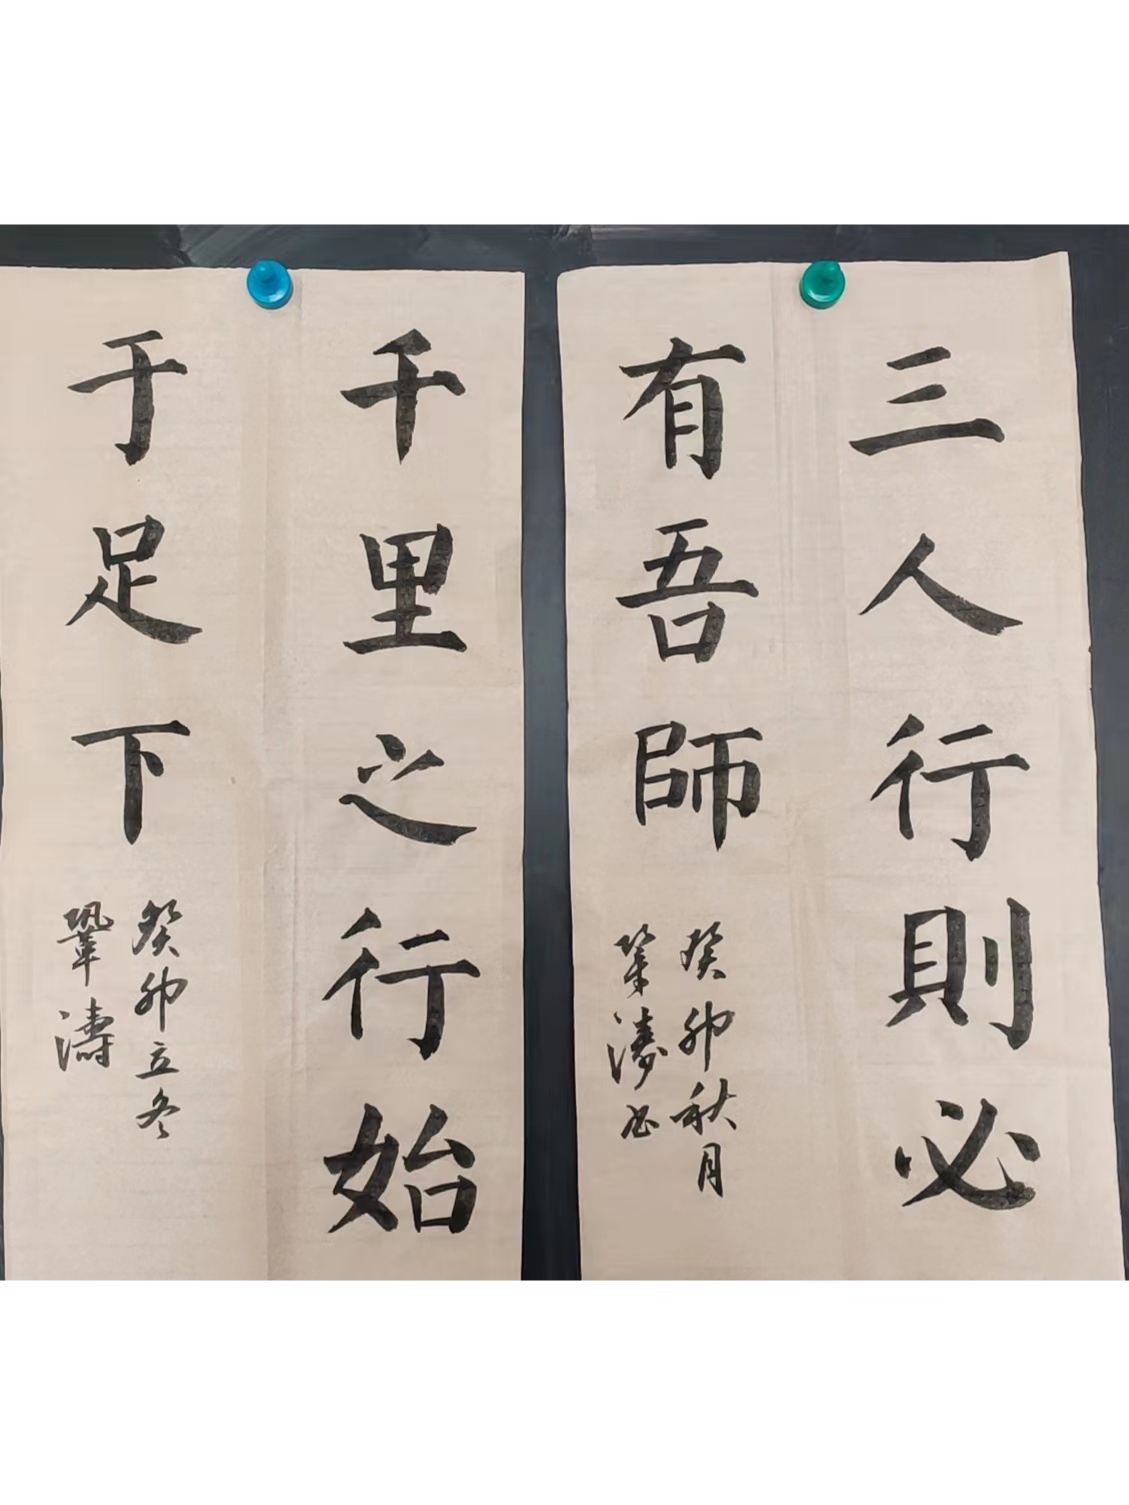 三人行則必
有吾師
癸卯秋月
鞏濤書
千里之行始
于足下
癸卯立冬
鞏濤